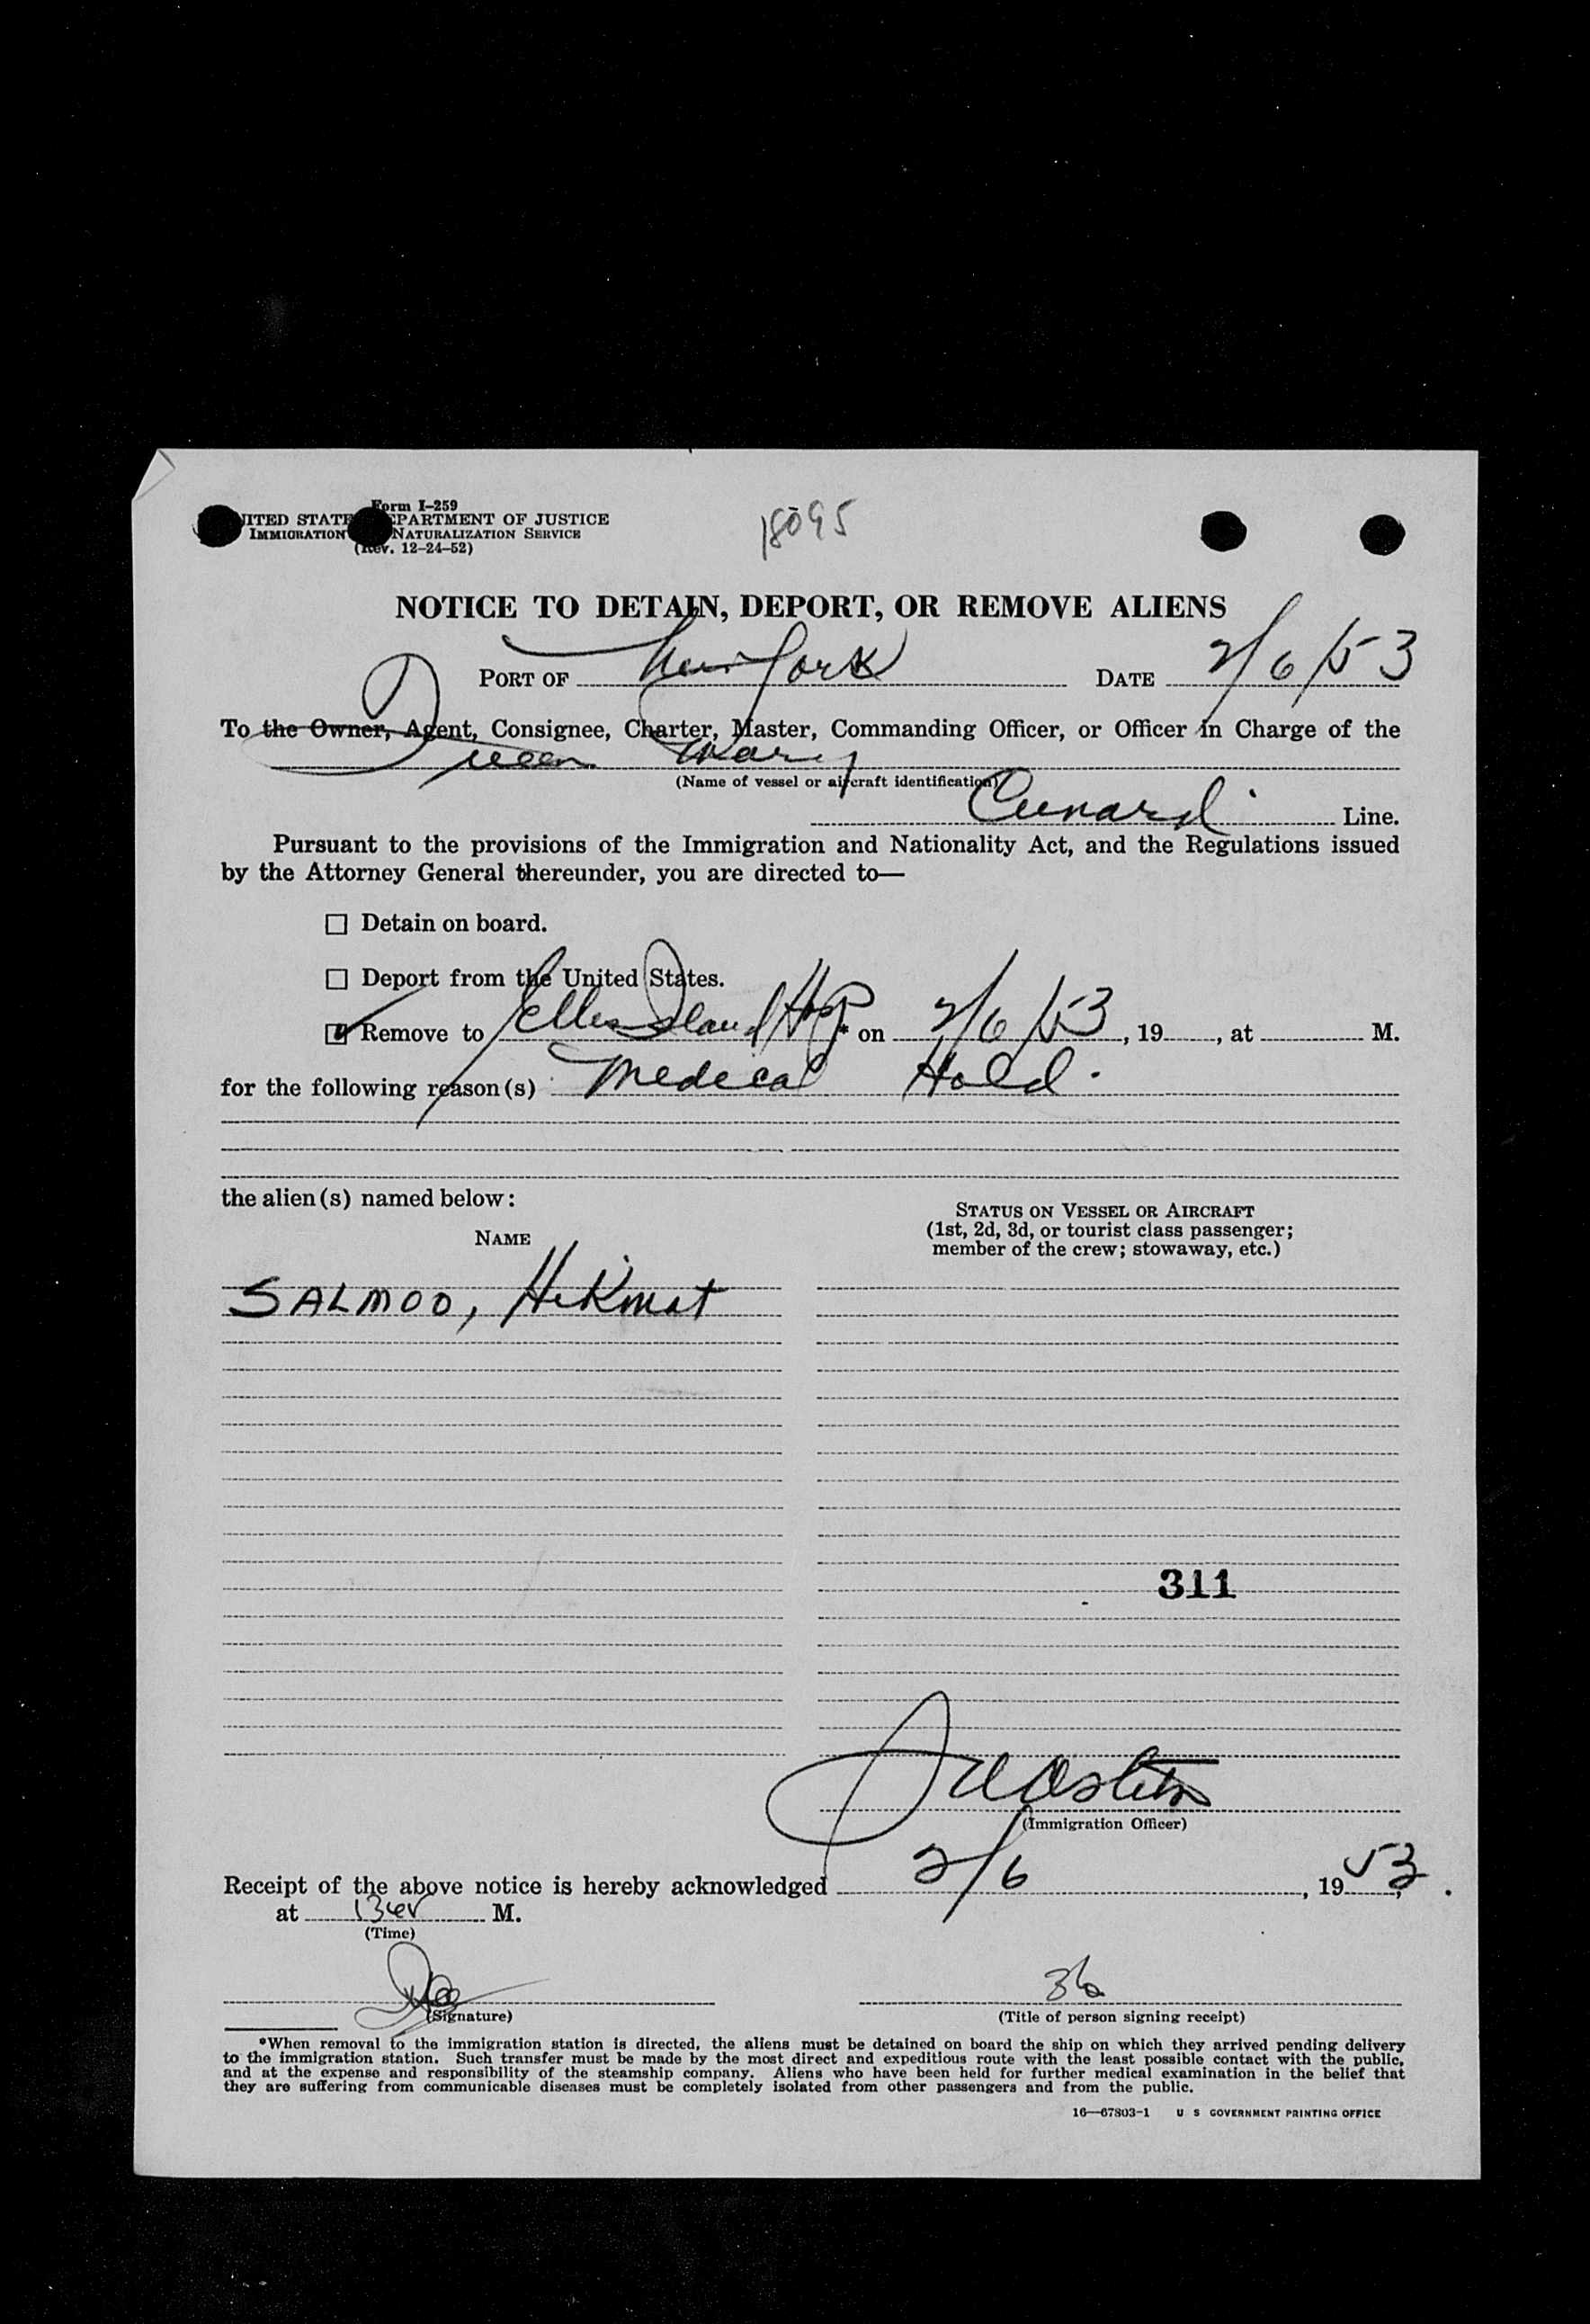 Form I-259
UNITED STATES DEPARTMENT OF JUSTICE
IMMIGRATION NATURALIZATION SERVICE
(Rev. 12-24-52)
18095
NOTICE TO DETAIN, DEPORT, OR REMOVE ALIENS
PORT OF New York DATE 2/6/53
To the Owner, Agent, Consignee, Charter, Master, Commanding Officer, or Officer in Charge of the
Queen Mary
(Name of vessel or aircraft identification)
Cunard Line.
Pursuant to the provisions of the Immigration and Nationality Act, and the Regulations issued
by the Attorney General thereunder, you are directed to—
☐ Detain on board.
☐ Deport from the United States.
☑ Remove to Ellis Island Hosp * on 2/6/53, 19 , at M.
for the following reason(s) Medical Hold.
the alien(s) named below:
NAME
STATUS ON VESSEL OR AIRCRAFT
(1st, 2d, 3d, or tourist class passenger;
member of the crew; stowaway, etc.)
SALMOO, Hikmat
311
(Immigration Officer)
Receipt of the above notice is hereby acknowledged 2/6, 1953,
at M.
(Time)
36
(Signature)
(Title of person signing receipt)
*When removal to the immigration station is directed, the aliens must be detained on board the ship on which they arrived pending delivery
to the immigration station. Such transfer must be made by the most direct and expeditious route with the least possible contact with the public,
and at the expense and responsibility of the steamship company. Aliens who have been held for further medical examination in the belief that
they are suffering from communicable diseases must be completely isolated from other passengers and from the public.
16—67803-1 U S GOVERNMENT PRINTING OFFICE